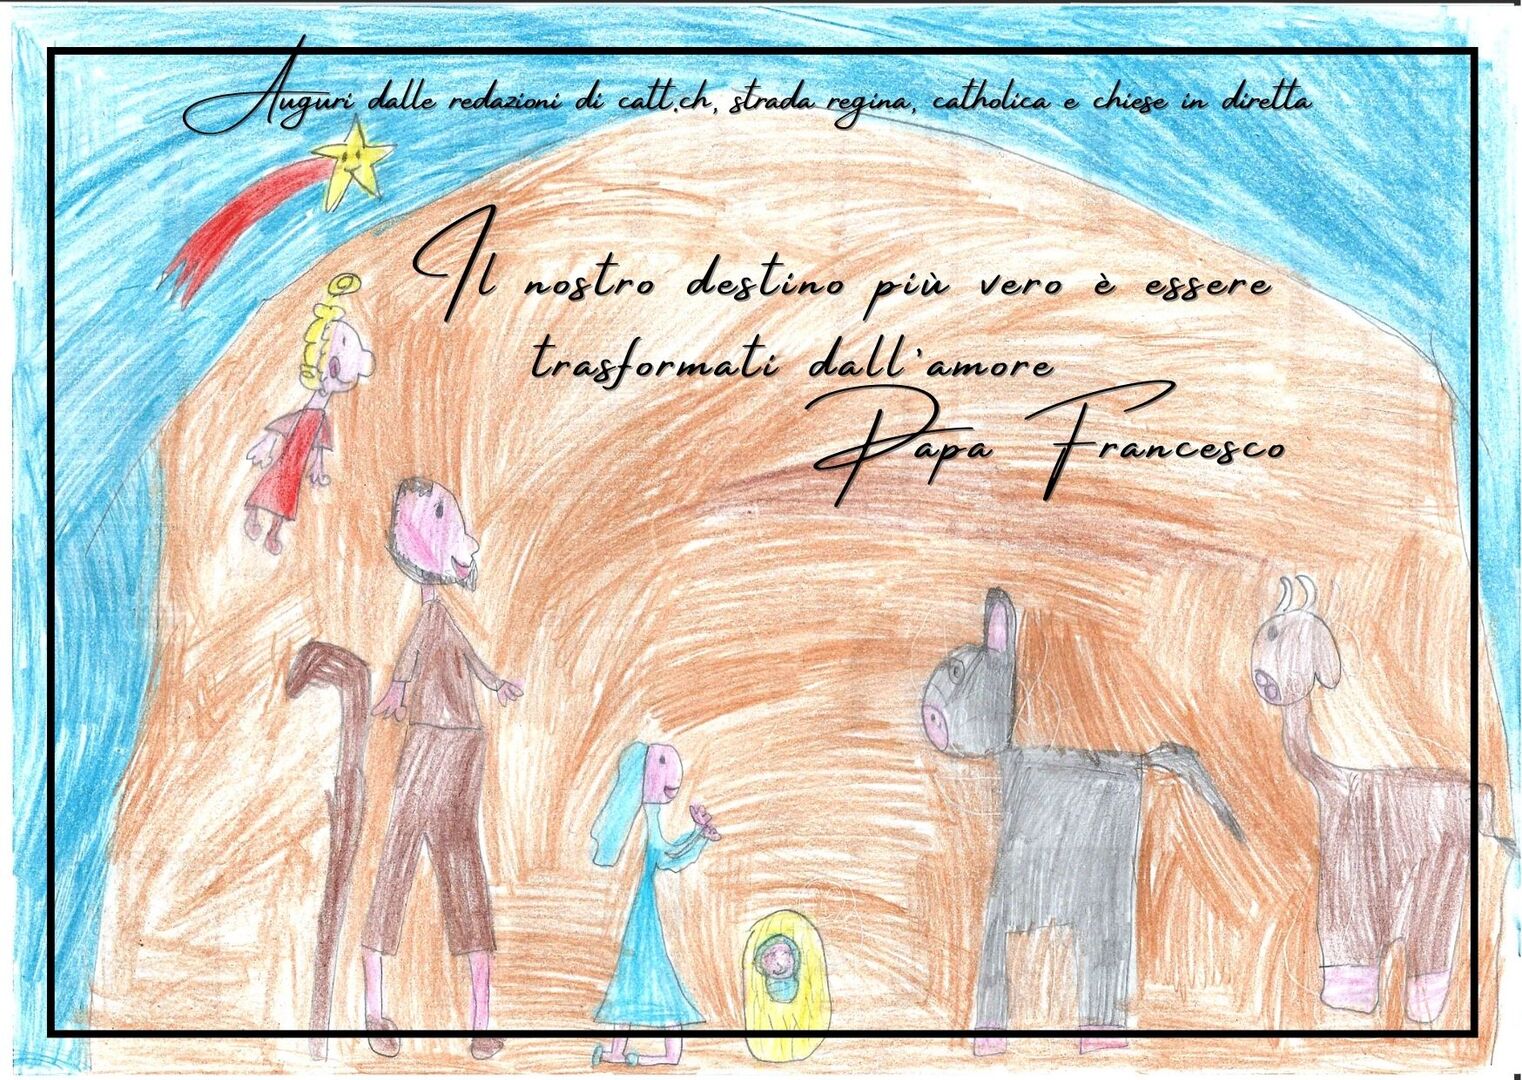 Auguri dalle redazioni di catt.ch, strada regina, catholica e chiese in diretta
Il nostro destino più vero è essere
trasformati dall'amore
Papa Francesco